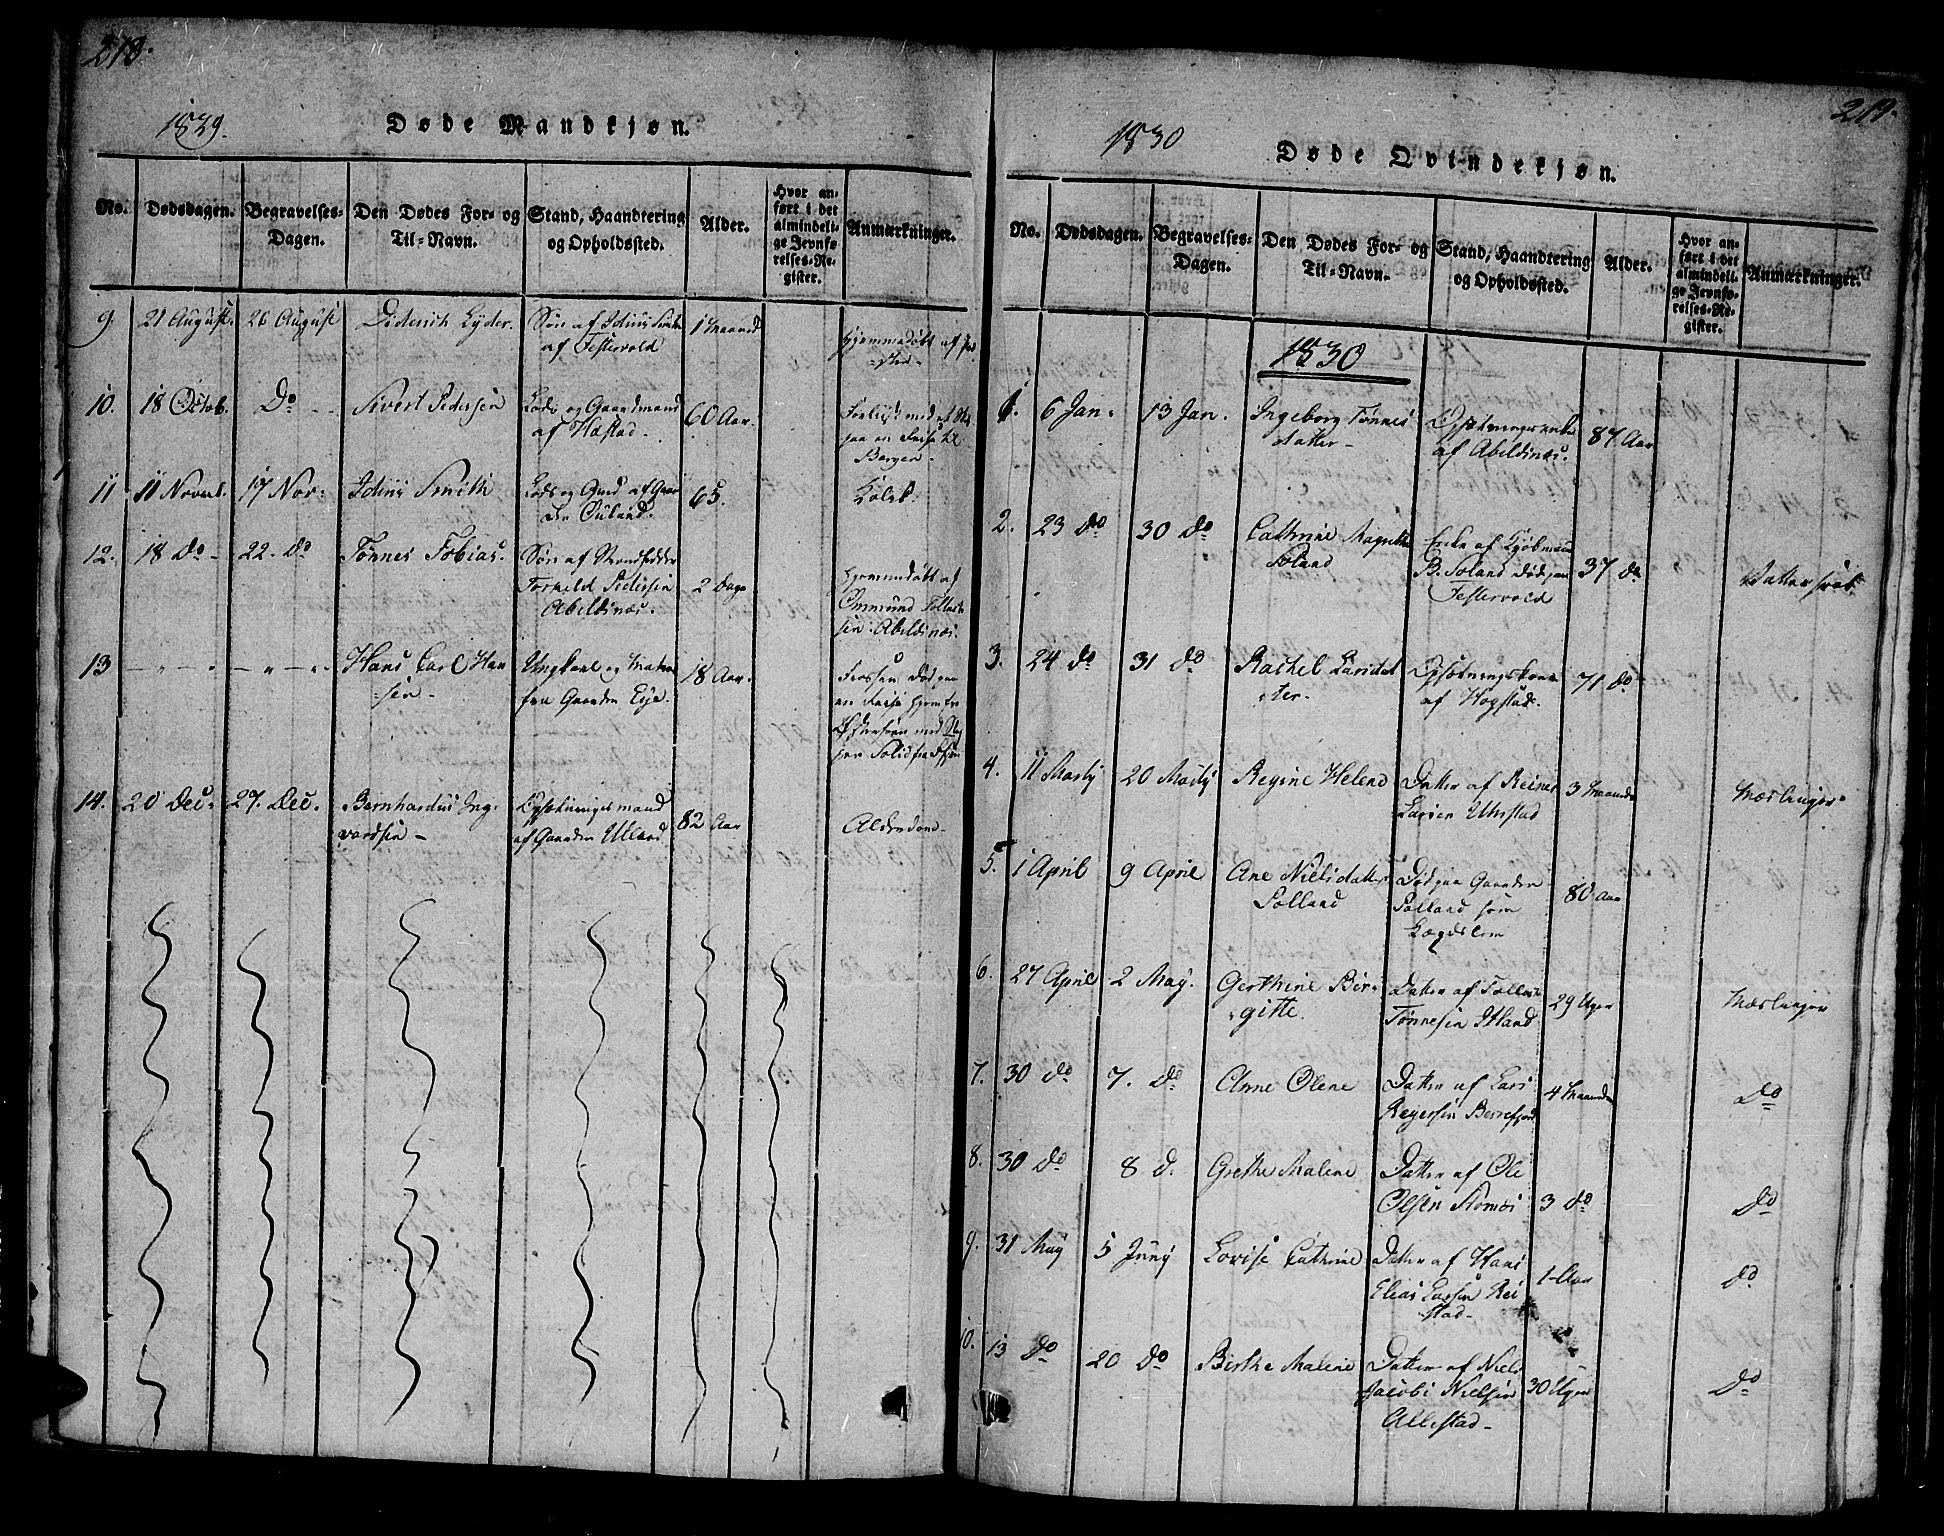 218.
1829.
Døde Mandkjøn.
No. Dødsdagen. Begravelses-Dagen. Den Dødes For- og Til-Navn. Stand, Haandtering og Opholdssted. Alder. Hvor anført i det almindelige Jevnførelses-Register. Anmærkninger.
9. 21 August. 26 August Diderich Lyder. Søn af Idius Smith af Festervold 1 Maaned Hjemmedøbt af
10. 18 Octob. Do Sivert Pedersen Lods og Gaardmand af Hastad. 60 Aar. Forliist med et paa en Reise til Bergen.
11 11 Novbr. 17 Nov: Idius Smith Lods og af Gaarden Øuland. 65.
12. 18 Do 22. Do Tønnes Tobias. Søn af Strandsidder Torkild Pedersen Abeldnæs. 2 Dage Hjemmedøbt af Ommund Tollacsen Abeldnæs.
13 Hans Carl Hansen Ungkarl og Matros fra Gaarden Eye. 18 Aar. Frossen Død paa en Reise hjem fra med
14. 20 Dec. 27. Dec. Bernhardus Ingvardsen Opsidningsmand af Gaarden Ulland 82 Aar Alderdom
219.
1830
Døde Qvindekjøn.
No. Dødsdagen. Begravelses-Dagen. Den Dødes For- og Til-Navn. Stand, Haandtering og Opholdssted. Alder. Hvor anført i det almindelige Jevnførelses-Register. Anmærkninger.
1830
1. 6 Jan. 13 Jan. Ingeborg Tønnesdatter af Abeldnæs. 87 Aar
2. 23 Do 30 Do Cathrine Magrethe Toland Enke af Kjøbmand B. Toland Død paa Festervold 37 Do
3. 24 Do 31 Do Rachel Larsdatter af Hogstad. 71 Do
4. 11 Martj 20 Martj Regine Helene Datter af Reiner Larsen Urstad 3 Maaneder Mæslinger
5. 1 April 9 April Ane Nielsdatter Solland Død paa Gaarden Solland som Lægdslem 80 Aar
6. 27 April 2 May. Gerthine Birgitte. Datter af Tollac Tønnesen Itland 29 Uger Mæslinger
7. 30 Do 7. Do Anne Olene Datter af Lars Reyersen Berrefjord 4 Maaneder Do
8. 30 Do 8 D. Grethe Malene Datter af Ole Olsen 3 Do Do
9. 31 May 5 Junj Lovise Cathrine Datter af Hans Elias Larsen Reistad 1 Aar Do
10. 13 Do 20 Do Birthe Malene Datter af Niels Jacobi Nielsen Allestad 30 Uger Do